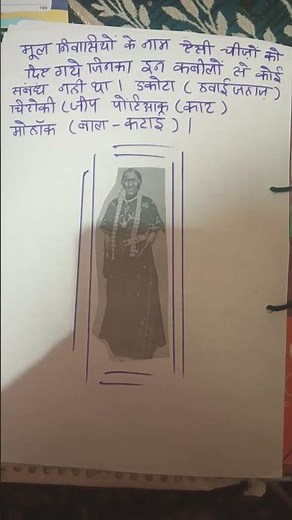 मूल निवासियों के नाम ऐसी चीज़ों को
दिए गये जिनका इन कबीलों से कोई
संबंध नही था । डकोटा ( हवाई जहाज )
चिरोकी ( जीप पोंटिआक ( कार )
मोहॉक ( बाल - कटाई ) ।